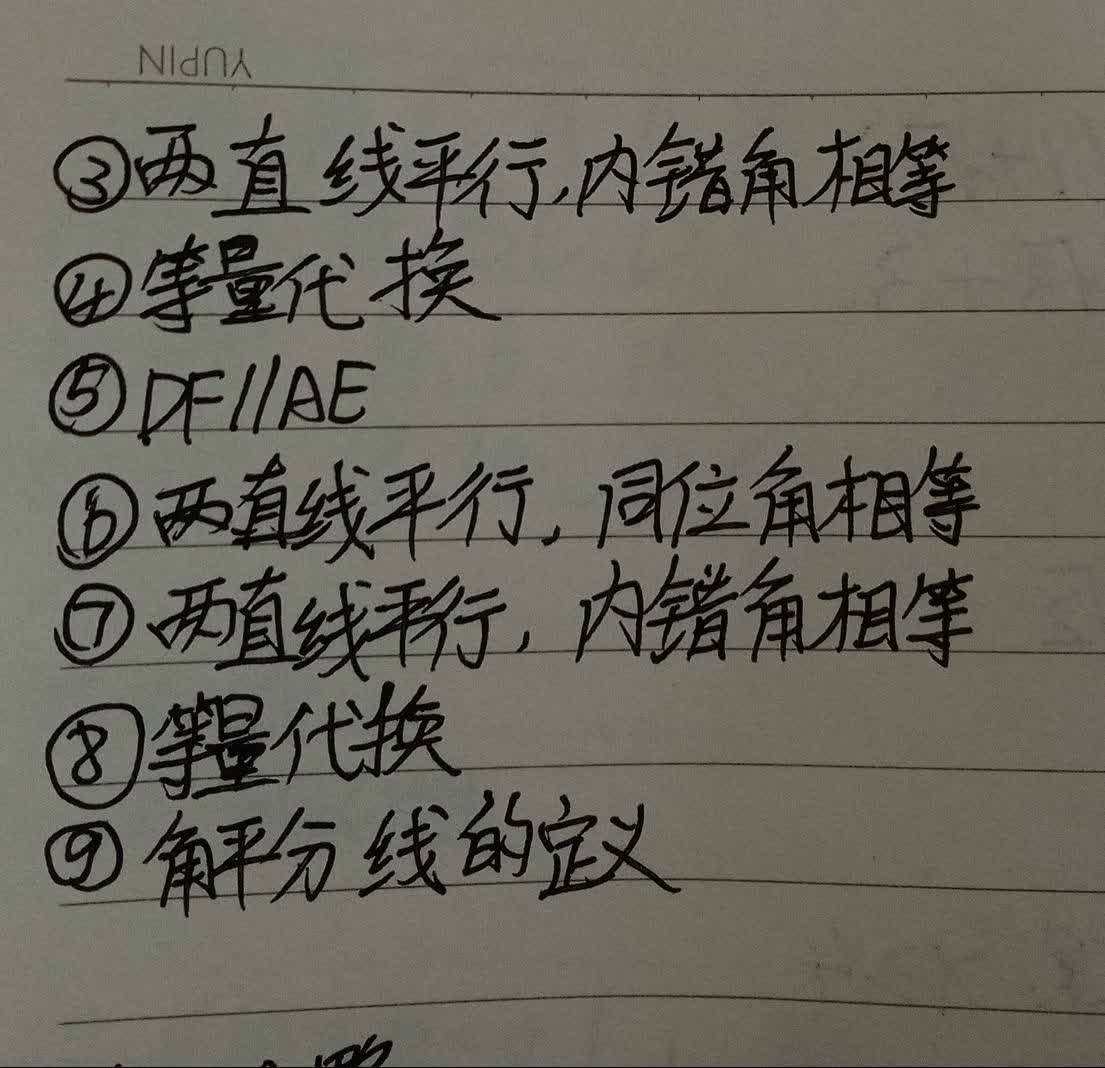 YUPIN
③两直线平行,内错角相等
④等量代换
⑤DF//AE
⑥两直线平行,同位角相等
⑦两直线平行,内错角相等
⑧等量代换
⑨角平分线的定义